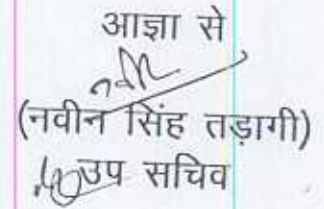 आज्ञा से
(नवीन सिंह तड़ागी)
उप सचिव